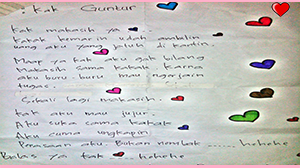 : Kak Guntur
Kak makasih ya
Kakak kemarin udah ambilin
uang aku yang jatuh di kantin
Maaf ya kak aku gak bilang
makasih sama kakak karna
aku buru-buru mau ngerjain
tugas.
Sekali lagi makasih.
kak aku mau jujur
Aku suka sama kakak
Aku cuma ungkapin
Perasaan aku. Bukan nembak ..... hehehe
Balas ya kak ... hehehe